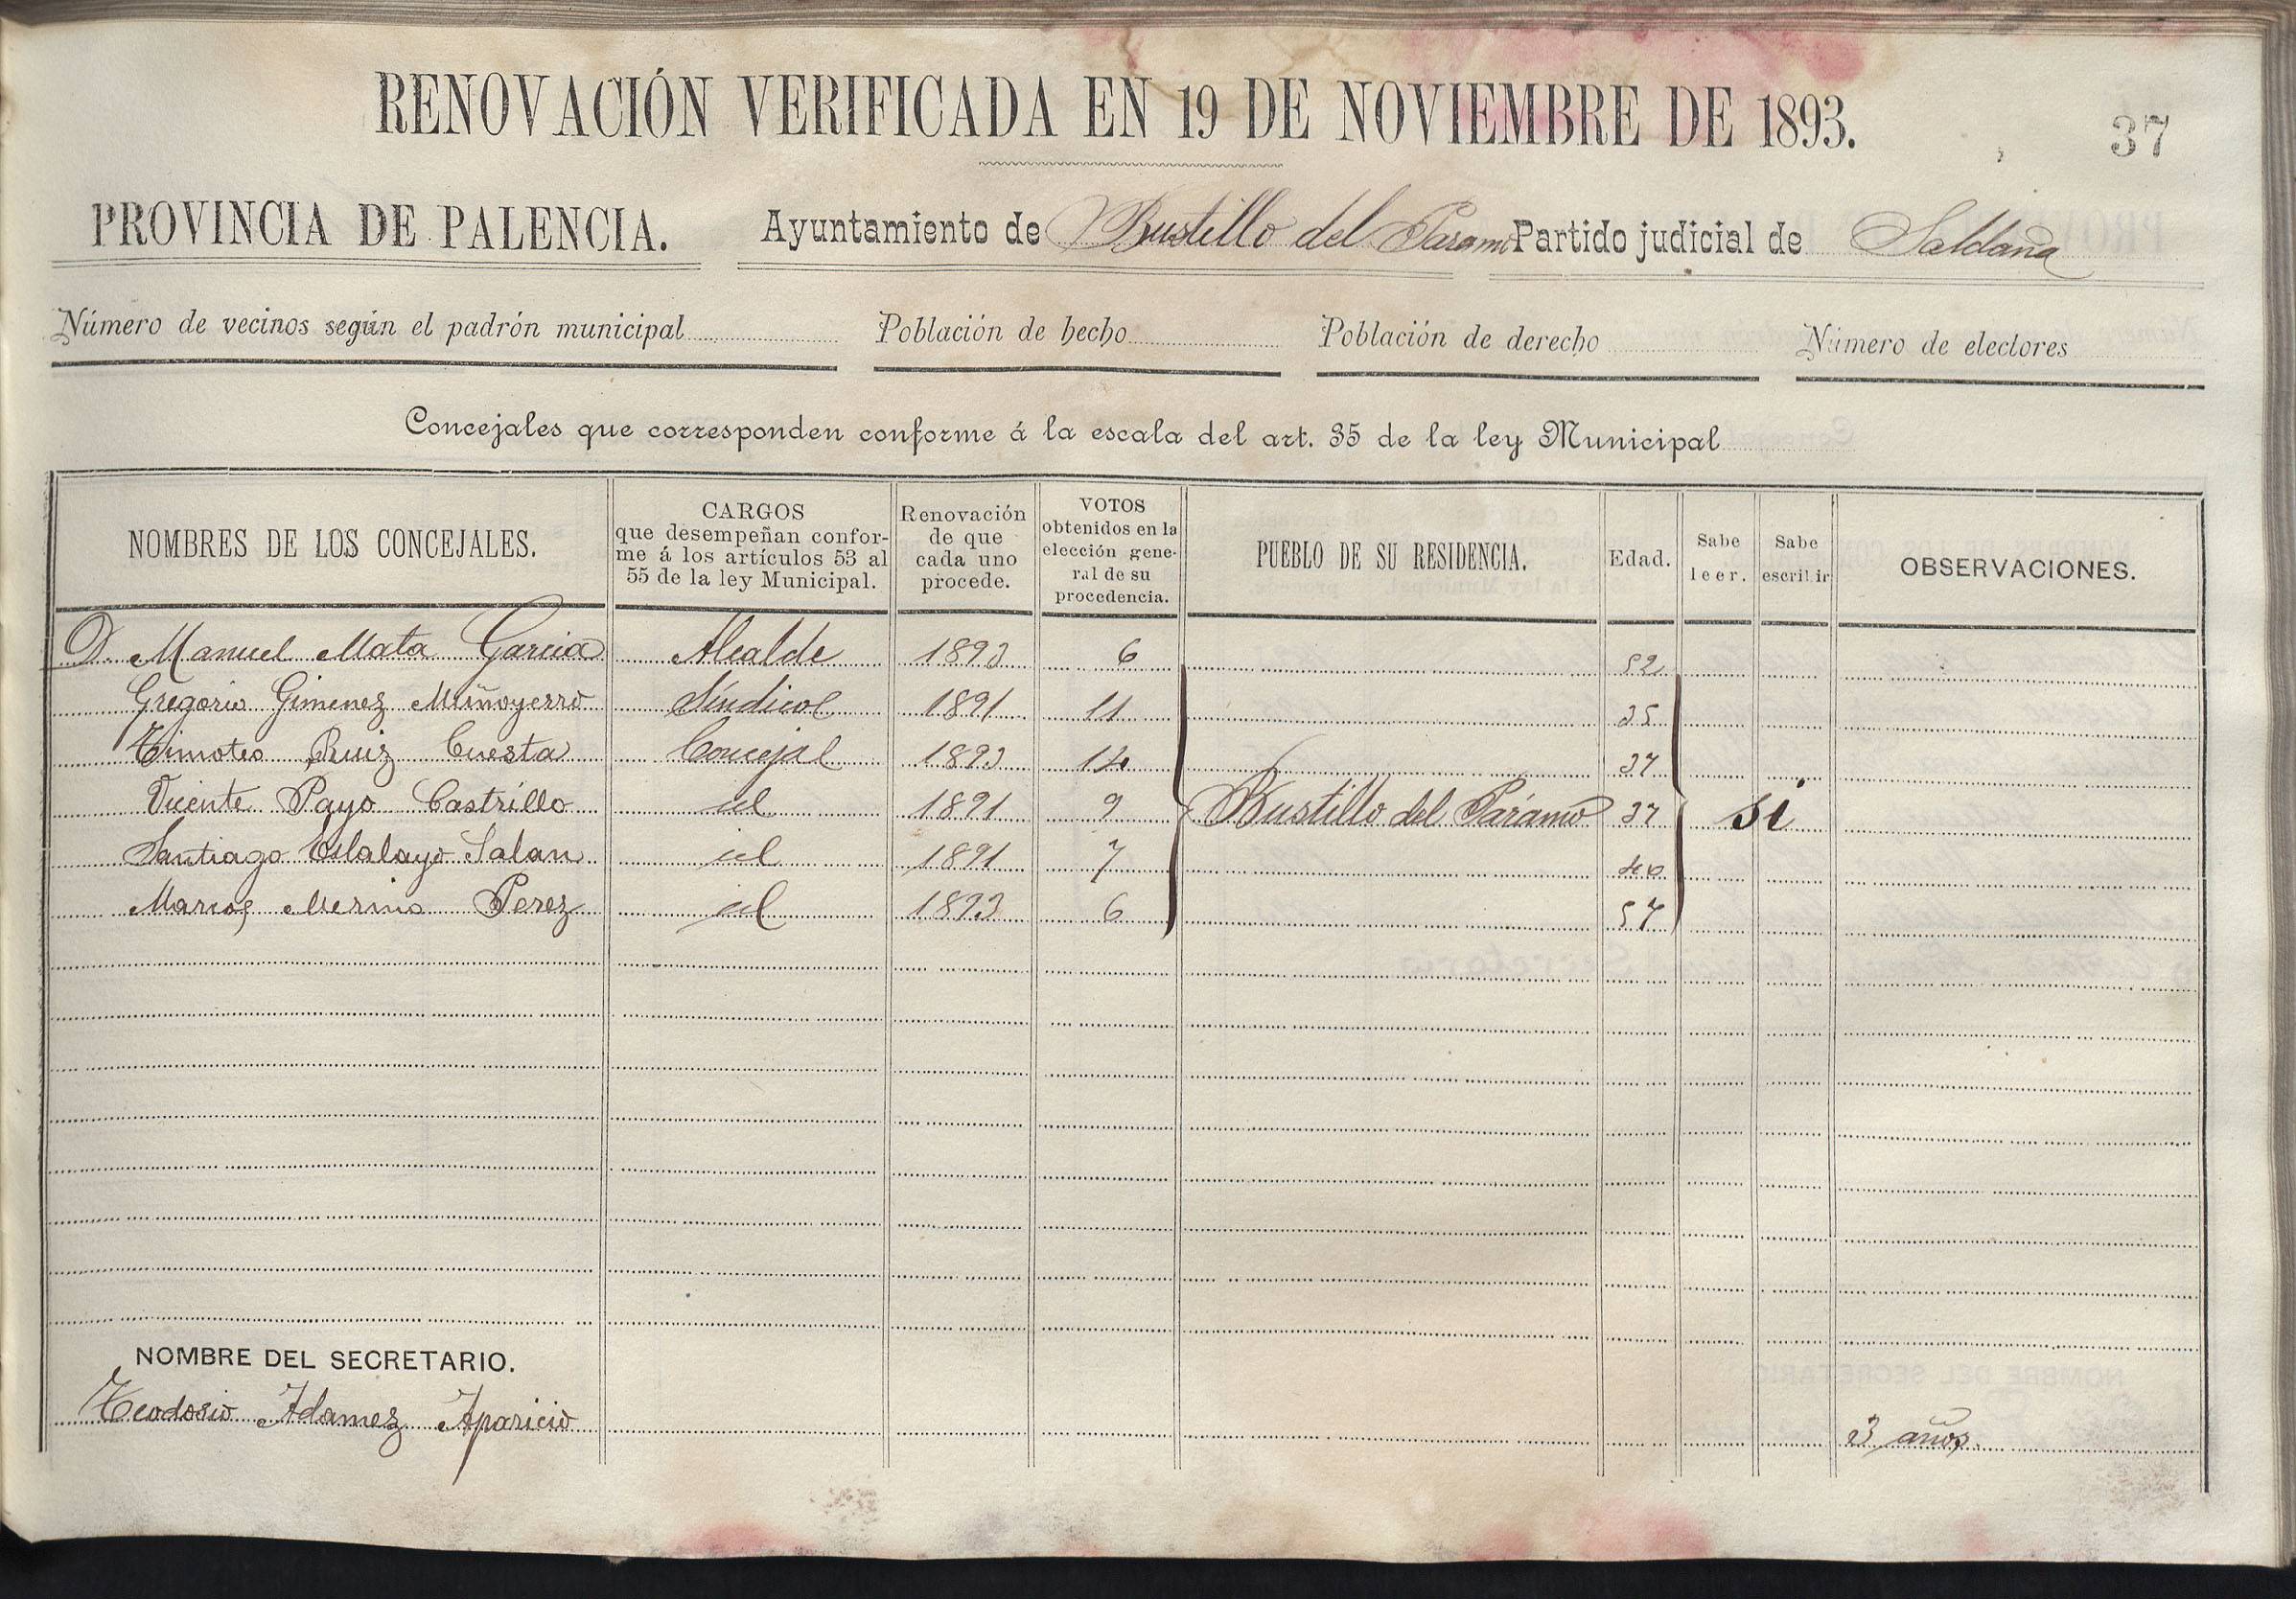 RENOVACIÓN VERIFICADA EN 19 DE NOVIEMBRE DE 1893.
37
PROVINCIA DE PALENCIA. Ayuntamiento de Bustillo del Paramo Partido judicial de Saldaña
Número de vecinos según el padrón municipal Población de hecho Población de derecho Número de electores
Concejales que corresponden conforme á la escala del art. 35 de la ley Municipal
NOMBRES DE LOS CONCEJALES.
CARGOS
que desempeñan confor-
me á los artículos 53 al
55 de la ley Municipal.
Renovación
de que
cada uno
procede.
VOTOS
obtenidos en la
elección gene-
ral de su
procedencia.
PUEBLO DE SU RESIDENCIA.
Edad.
Sabe
leer.
Sabe
escribir
OBSERVACIONES.
D. Manuel Mata Garcia Alcalde 1893 6 52
Gregorio Gimenez Muñoyerro Síndico 1891 11 35
Timoteo Ruiz Cuesta Concejal 1893 14 37
Vicente Payo Castrillo id 1891 9 Bustillo del Páramo 37 si
Santiago Salan id 1891 7 40
Marcos Merino Perez id 1893 6 57
NOMBRE DEL SECRETARIO.
Teodosio Adamez Aparicio 3 años.